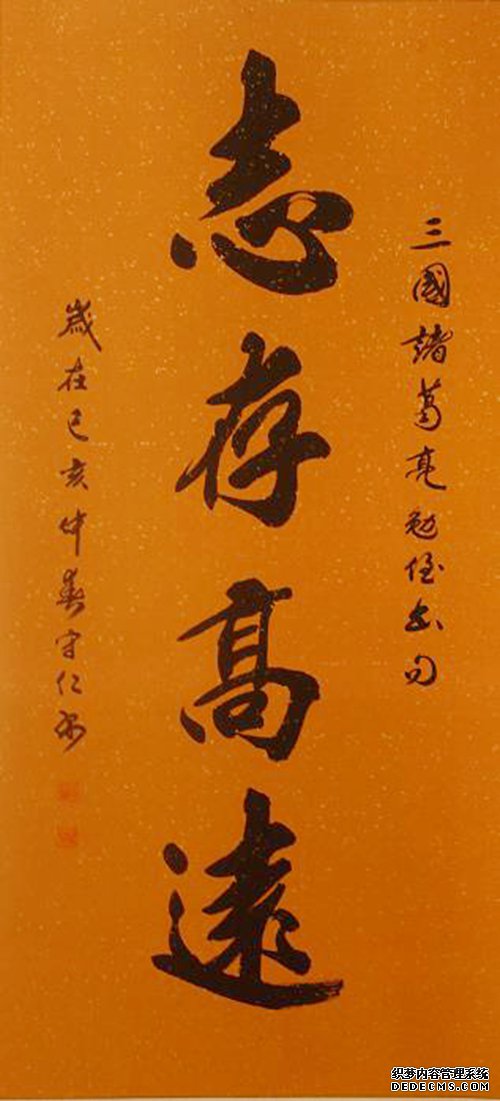 三國諸葛亮勉侄書句
志存高遠
歲在己亥仲春守仁書
织梦内容管理系统
DEDECMS.COM